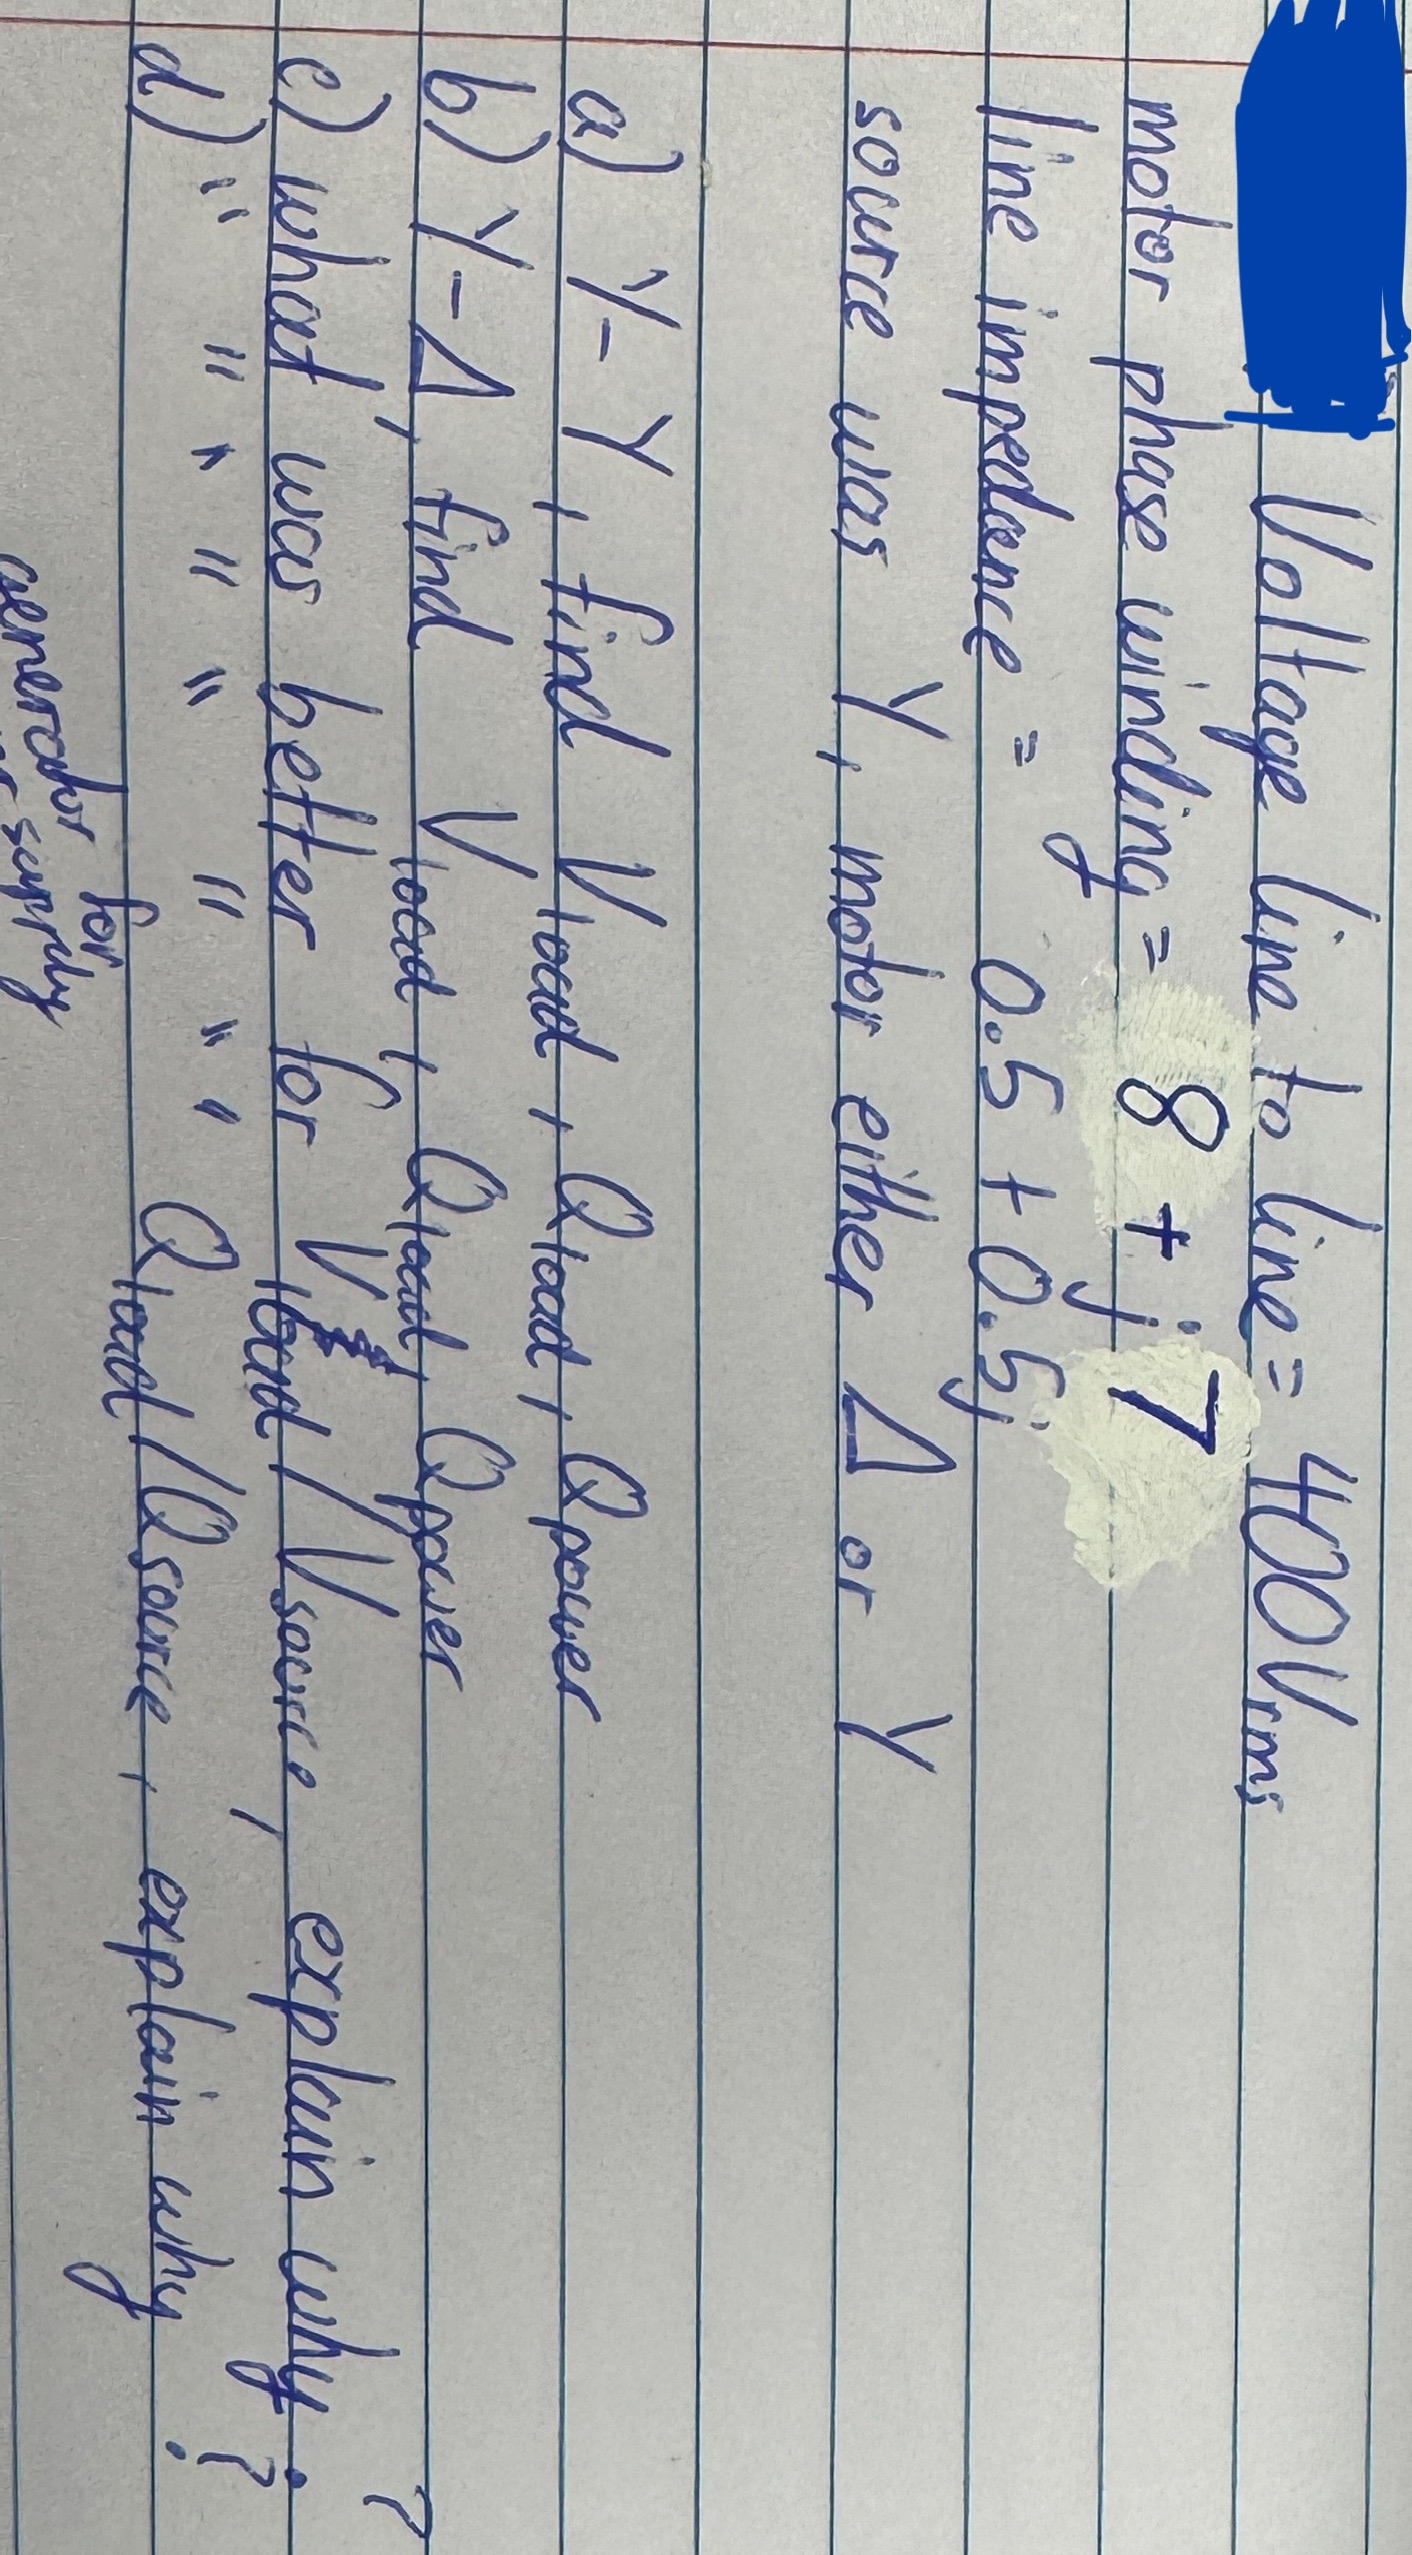 Voltage line to line = 400Vrms
motor phase winding = 8 + j7
line impedance = 0.5 + 0.5j
source was Y, motor either Δ or Y
a) Y-Y, find Vload, Qload, Qpower
b) Y-Δ, find Vload, Qload, Qpower
c) what was better for Vload/Vsource, explain why?
d) " " " " " " " " Qload/Qsource, explain why?
generator for
supply